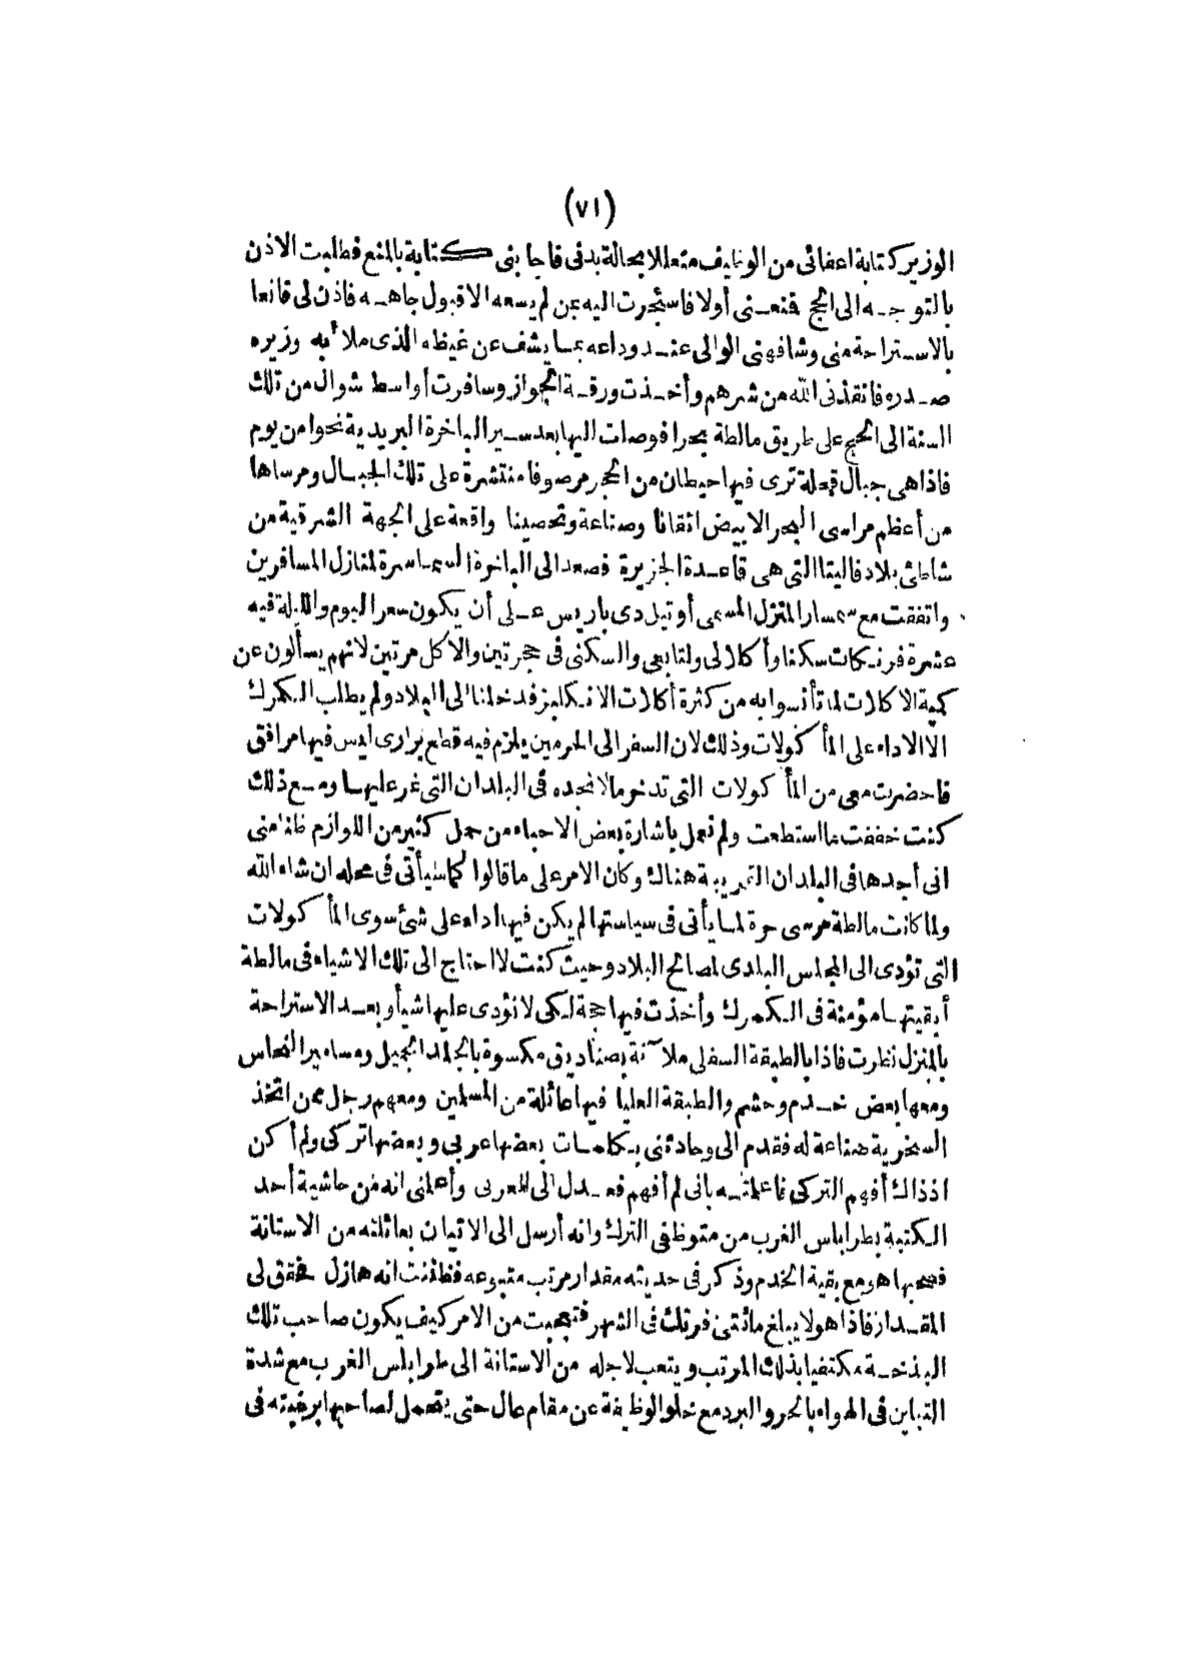 (٧١)
الوزير كتابة اعفائى من الوظايف متعللا بحالة بدنى فاجابنى كتابة بالمنع فطلبت الاذن
بالتوجه الى الحج فمنعنى أولا فاستجرت اليه بمن لم يسعه الا قبول جاهه فاذن لى قانعا
بالاستراحة منى وشافهنى الوالى عند وداعه بما يشف عن غيظه الذى ملأ به وزيره
صدره فانقذنى الله من شرهم وأخذت ورقة الجواز وسافرت أواسط شوال من تلك
السنة الى الحج على طريق مالطة بحرا فوصلت اليها بعد سير الباخرة البريدية نحوا من يوم
فاذا هى جبال قحلة ترى فيها حيطان من الحجر مرصوفا منتشرة على تلك الجبال ومرساها
من أعظم مراسى البحر الابيض اتقانا وصناعة وتحصينا واقعة على الجهة الشرقية من
شاطئ بلاد فاليتا التى هى قاعدة الجزيرة فصعد الى الباخرة السماسرة لمنازل المسافرين
واتفقت مع سمسار المنزل المسمى أوتيل دى باريس على أن يكون سعر اليوم والليلة فيه
عشرة فرنكات سكنا وأكلا لى ولتابعى والسكنى فى حجرتين والاكل مرتين لانهم يسألون عن
كمية الاكلات لما تأنسوا به من كثرة أكلات الانكليز فدخلنا الى البلاد ولم يطلب الكمرك
الا الاداء على المأكولات وذلك لان السفر الى الحرمين يلزم فيه قطع برارى ليس فيها مرافق
فاحضرت معى من المأكولات التى تدخر مالا نجده فى البلدان التى نمر عليها ومع ذلك
كنت خففت ما استطعت ولم نعمل باشارة بعض الاحباء من حمل كثير من اللوازم ظنا منى
انى أجدها فى البلدان القريبة هناك وكان الامر على ما قالوا كما سيأتى فى محله ان شاء الله
ولما كانت مالطة مرسى حرة لما يأتى فى سياستها لم يكن فيها اداء على شئ سوى المأكولات
التى تؤدى الى المجلس البلدى لمصالح البلاد وحيث كنت لا احتاج الى تلك الاشياء فى مالطة
أبقيتها مؤمنة فى الكمرك وأخذت فيها حجة لكى لا نؤدى عليها شيأ وبعد الاستراحة
بالمنزل نظرت فاذا بالطبقة السفلى ملآنة بصناديق مكسوة بالجلد الجميل ومسامير النحاس
ومعها بعض خدم وحشم والطبقة العليا فيها عائلة من المسلمين ومعهم رجل ممن اتخذ
السخرية صناعة له فقدم الى وحادثنى بكلمات بعضها عربى وبعضها تركى ولم أكن
اذ ذاك أفهم التركى فاعلمته بانى لم أفهم فعدل الى العربى وأعلمنى انه من حاشية أحد
الكتبة بطرابلس الغرب من متوظفى الترك وانه أرسل الى الاتيان بعائلته من الاستانة
فصحبها هو مع بقية الخدم وذكر فى حديثه مقدار مرتب متبوعه فظننت انه هازل فحقق لى
المقدار فاذا هو لا يبلغ مائتى فرنك فى الشهر فتعجبت من الامر كيف يكون صاحب تلك
البذخة مكتفيا بذلك المرتب ويتعب لاجله من الاستانة الى طرابلس الغرب مع شدة
التباين فى الهواء بالحر والبرد مع خلو الوظيفة عن مقام عال حتى يتحمل لصاحبها برغبته فى